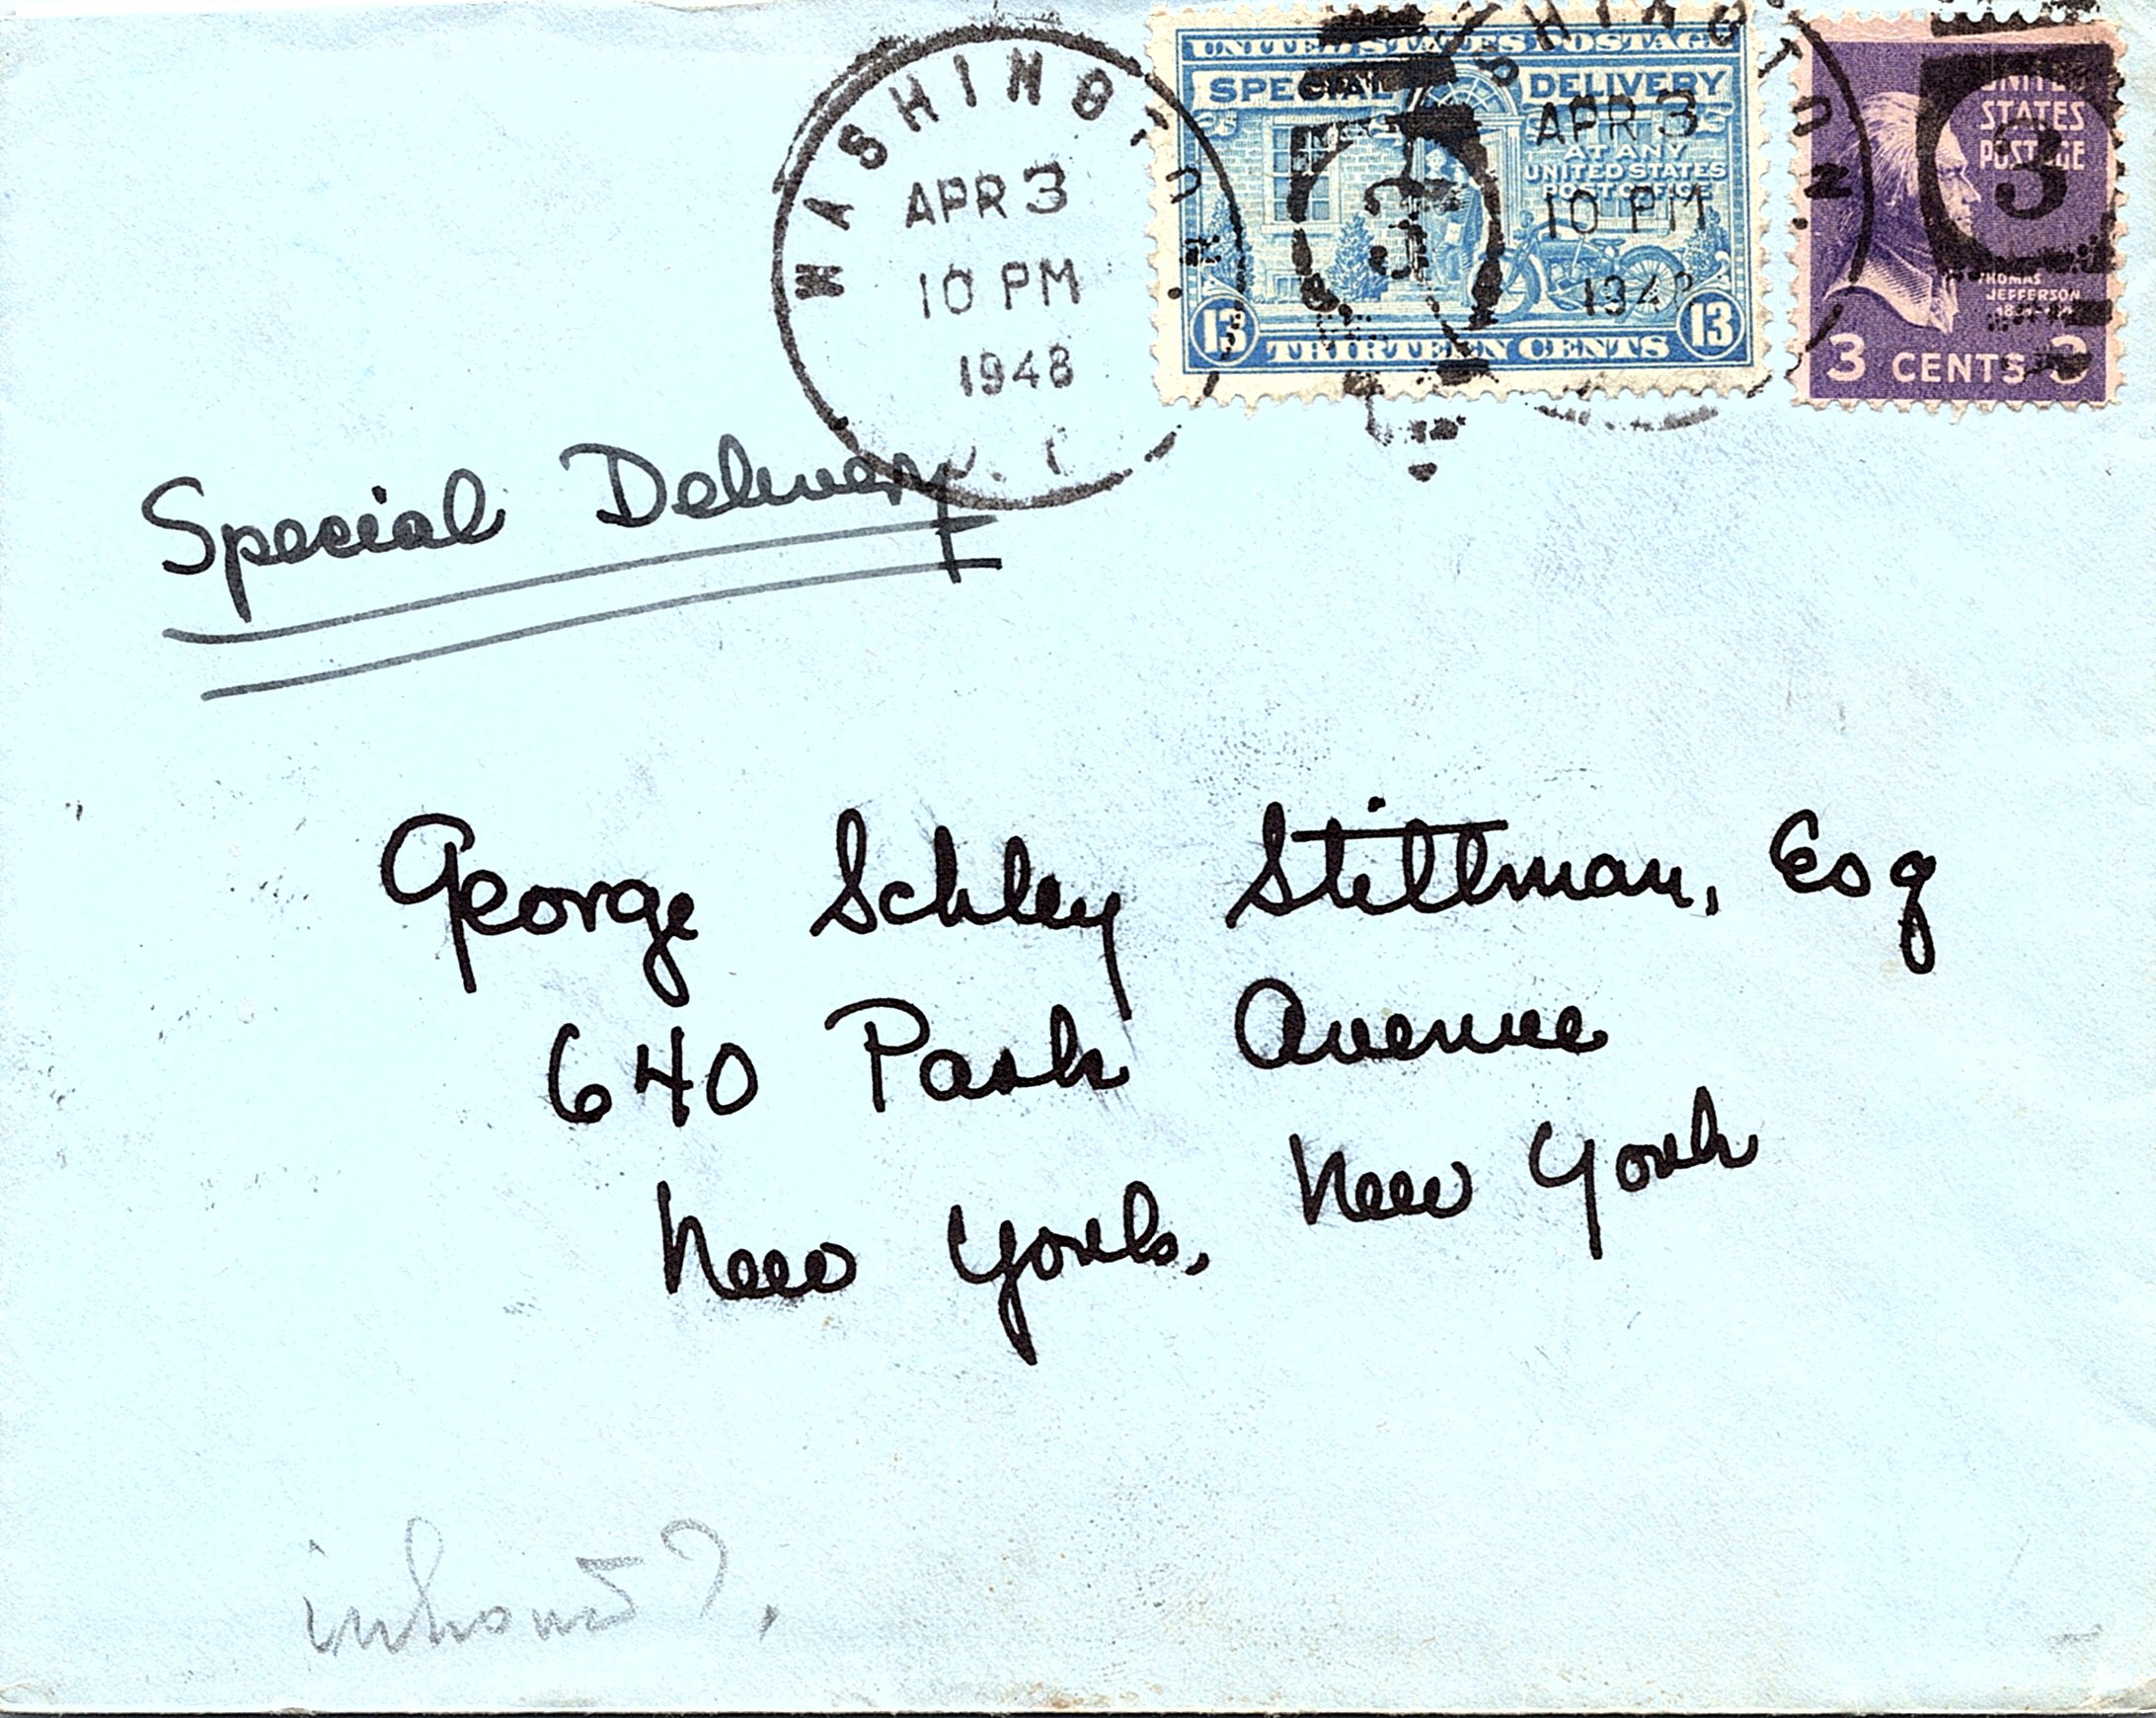 WASHINGTON
APR 3
10 PM
1948
UNITED STATES POSTAGE
SPECIAL DELIVERY
AT ANY
UNITED STATES
POST OFFICE
13 THIRTEEN CENTS 13
WASHINGTON
APR 3
10 PM
1948
3
UNITED
STATES
POSTAGE
3
THOMAS
JEFFERSON
3 CENTS 3
Special Delivery
George Schley Stillman, Esq
640 Park Avenue
New York, New York